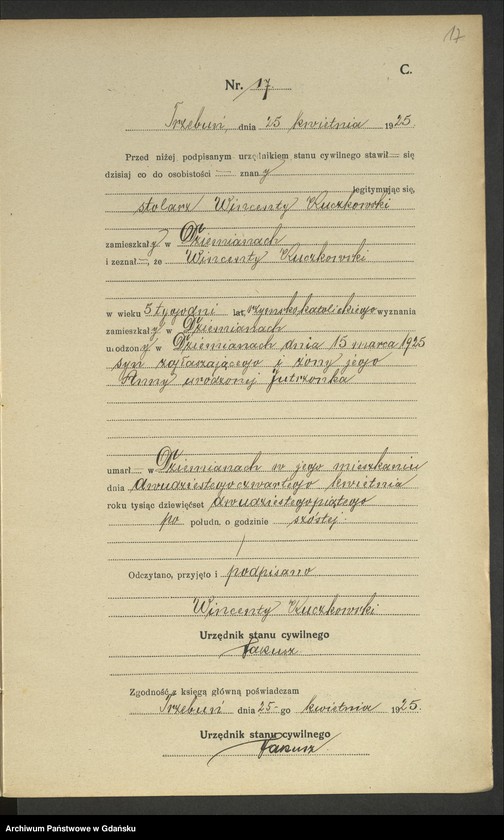 17
C.
Nr. 17.
Trzebuń, dnia 25 kwietnia 1925.
Przed niżej podpisanym urzędnikiem stanu cywilnego stawił się
dzisiaj co do osobistości znany
legitymując się,
stolarz Wincenty Kuczkowski
zamieszkały w Dziemianach
i zeznał, że Wincenty Kuczkowski
w wieku 5 tygodni lat, rzymskokatolickiego wyznania
zamieszkały w Dziemianach
urodzony w Dziemianach dnia 15 marca 1925
syn zgłaszającego i żony jego
Anny urodzonej Jutrzonka
umarł w Dziemianach w jego mieszkaniu
dnia dwudziestegoczwartego kwietnia
roku tysiąc dziewięćset dwudziestegopiątego
po połudn. o godzinie szóstej.
Odczytano, przyjęto i podpisano
Wincenty Kuczkowski
Urzędnik stanu cywilnego
Zgodność z księgą główną poświadczam
Trzebuń dnia 25-go kwietnia 1925.
Urzędnik stanu cywilnego
Archiwum Państwowe w Gdańsku